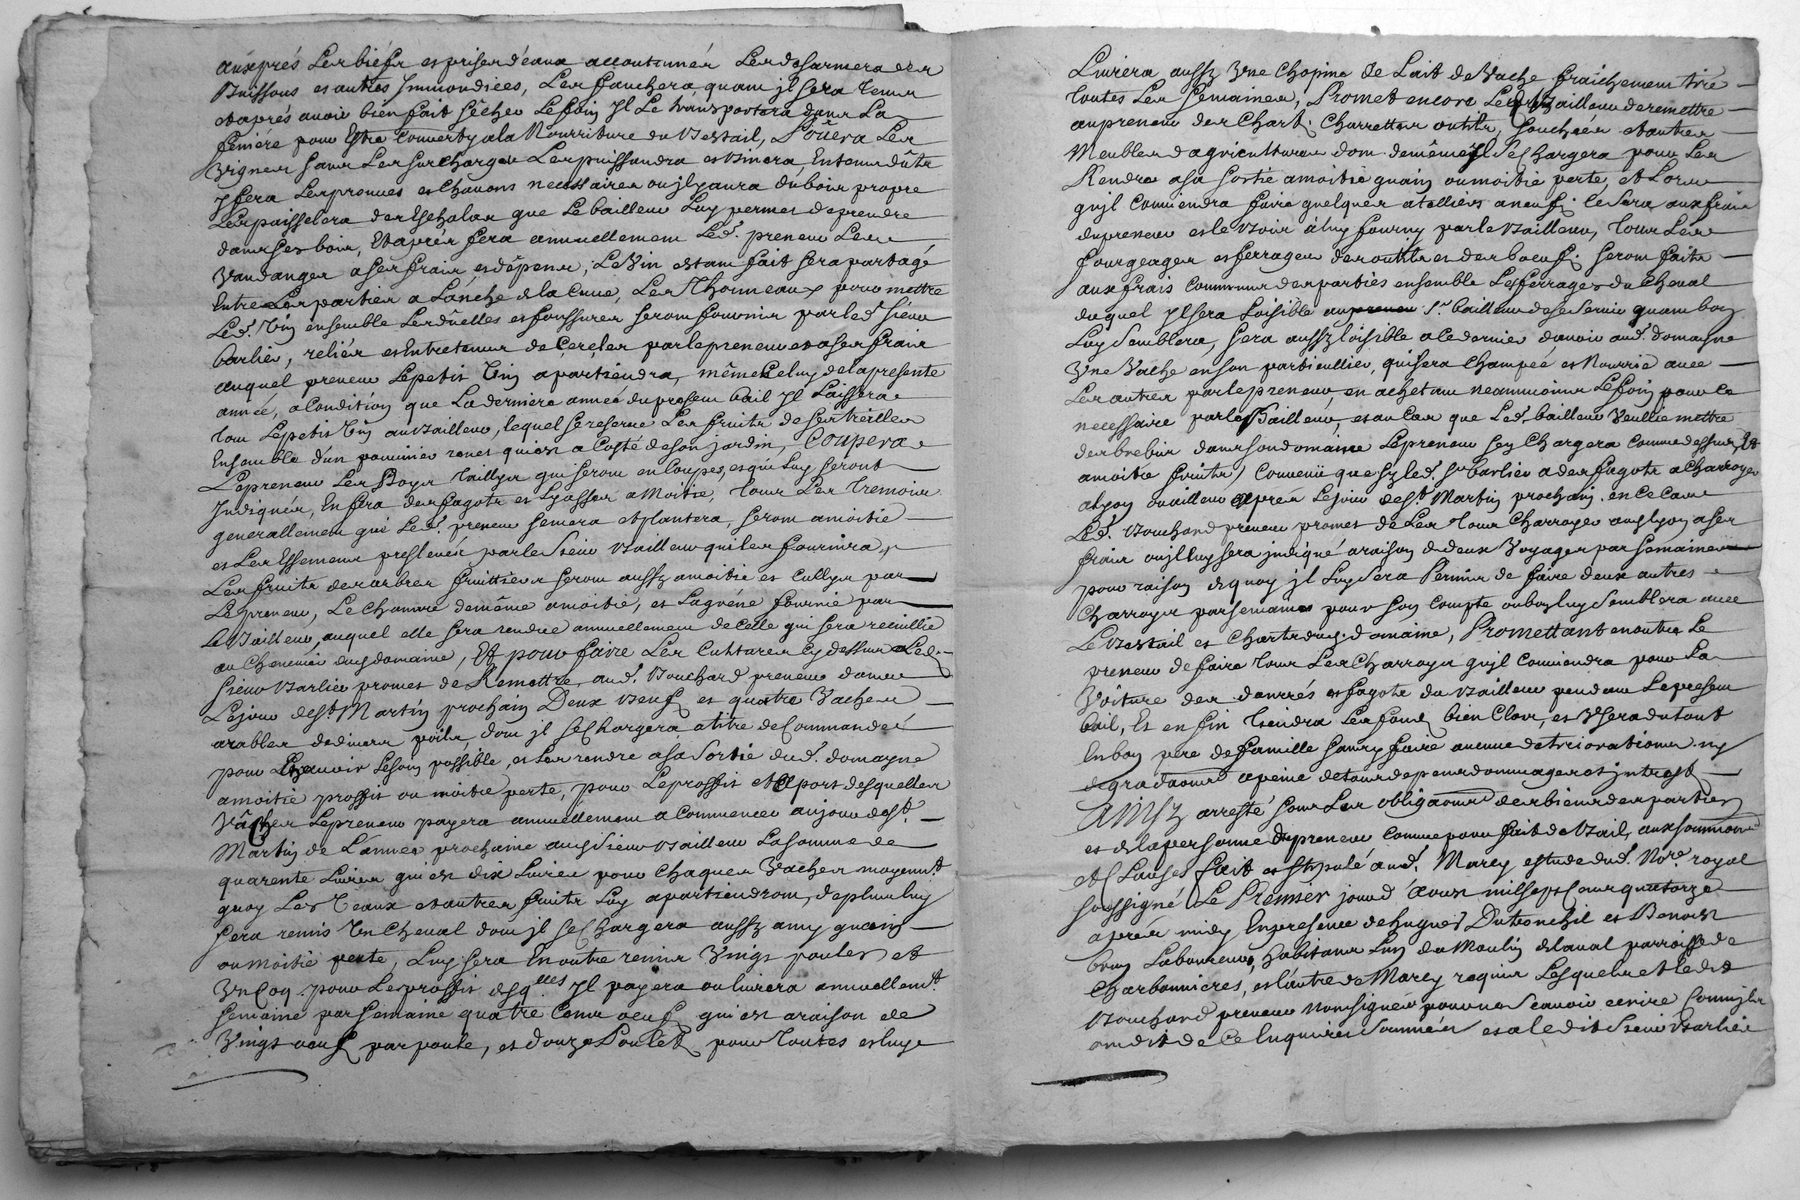 aux prés Les biefs et prises d'eaux accoutumés Les desarmera des
Buissons et autres Immondices, Les fauchera quam jl sera tems
et aprés avoir bien fait sécher Le foin Jl Le transportera dans La
feniére pour Estre Converty a la Nourriture du Bestail, Foüera Les
Vignes sans Les surcharger Les puissandra et binera En tems dûtr
y fera Les preuves et chavons necessaires ou jl y aura du bois propre
Les paisselera des Eschalas que Le bailleur Luy permet de prendre
dans ses bois, Et aprés fera annuellement Led. preneur Les
Vandanges a ses frais et dépens, Le Vin estant fait sera partagé
Entre Les parties a L'anche de la Cuve, Les Thonneaux pour mettre
Led. Vin ensemble Les düelles et fonssures seront fournis par led. sieur
barlier, reliés et Entretenus de Cercles par le preneur et a ses frais
auquel preneur Le petit Vin apartiendra, même Celuy de la presente
année, a Condition que La derniere année du present bail Jl Laissera
tout Le petit Vin au bailleur, lequel se reserve Les fruits de ses treilles
Ensemble d'un pommier renet qui est a Costé de son jardin, Coupera
Le preneur Les Boys Taillys qui seront en Coupes, et qui Luy seront
Indiqués, En fera des fagots et Lyasses a Moitié, tous Les Tremois
generallement que Led. preneur semera et plantera, seront a moitié
et Les Essemens preslevés par le Sieur bailleur qui les fournira,
Les fruits des arbres fruittiers seront aussy a moitié et Cullys par
Le preneur, Le Chanvre de même a moitié, et La gréne fournie par
Le Bailleur, auquel elle sera rendue annuellement de celle qui sera recuillie
au Chenevier dud. domaine, Et pour faire Les Cultures Cy dessus Led.
sieur barlier promet de Remettre aud. Bouchard preneur dans
Le jour de St. Martin prochain Deux boeufs et quatre Vaches
arables de divers poils, dont jl se Chargera a titre de Commande
pour En avoir Le soin possible, et Les rendre a sa Sortie dud. domayne
a moitié proffit ou moitié perte, pour Le proffit et aport desquelles
Vaches Le preneur payera annuellement a Commencer au jour de St.
Martin de L'année prochaine aud. Sieur bailleur La somme de
quarente Livres qui est dix Livres pour chaques Vaches moyent.
quoy Les Veaux et autres fruits Luy apartiendront, de plus luy
sera remis Un Cheval dont jl se Chargera aussy a my guain
ou moitié perte, Luy sera En outre remis Vingt poules et
Un Coq. pour Les proffits desq.lles Jl payera ou livrera annuellemt.
semaine par semaine quatre Cens oeufs qui est a raison de
Vingt oeufs par poule, et douze Poulets pour Toutes et luy
Livrera aussy Une Chopine de Lait de Vache fraichement tiré
toutes Les semaines, Promet encore Led. bailleur de remettre
au preneur des Chart. Charrettes outils, souchées et autres
Meubles d'agriculture dont de même Jl se Chargera pour Les
Rendre a sa sortie a moitié guain ou moitié perte, et Lors
qu'jl Conviendra faire quelques atelliers a neuf. le sera aux frais
du preneur et le bois a luy fourny par le bailleur, tous Les
fourgeages et ferrages des outils et des boeufs. seront faits
aux frais Communs des parties ensemble Les ferrages du Cheval
duquel jl sera Loisible au Sr. bailleur de se Servir quam bon
Luy Semblera, sera aussy loisible a le dernier d'avoir aud. domayne
Une Vache en son particullier, qui sera Champée et Nourrie avec
Les autres par le preneur, en achetant neanmoins Le foin pour le
necessaire par le Bailleur, et au cas que Led. bailleur Veullie mettre
des brebis dans son domaine Le preneur sen Chargera comme dessus, Et
a moitié fruits, Convenü que sy led. Sr. barlier a des fagots a Charroyer
a Lyon ou ailleurs aprés Le jour de St. Martin prochain. en ce cas
Led. Bouchard preneur promet de Les tous Charroyer aud. Lyon a ses
frais ou jl luy sera jndiqué a raison de deux Voyages par semaines
pour raison de quoy jl Luy Sera Permis de faire deux autres
Charroys par semaines pour son Compte ou bon luy Semblera avec
Le bestail et Charts dud. domaine, Promettant en outre Le
preneur de faire tous Les Charroys qu'jl Conviendra pour La
Voiture des denrées et fagots du bailleur pendant Le present
bail, Et en fin tiendra Les fonds bien Clos, et Usera du tout
En bon pere de famille sans y faire aucunes detriorations ny
degradaons a peine de tous depens dommages et jnterests
Ainsy arresté sous Les obligaons des biens des parties
et de la personne du preneur comme pour fait de bail, aux soumissions
et Clauses fait et stypulé aud. Marcy estude dud. Nore. royal
soussigné Le Premier jour d'aoust mil sept cens quatorze
aprés midy En presence de hugues Dutronchil et Benoist
brun Laboureurs, habitans Lun du Moulin de laval parroisse de
Charbonnieres, et l'autre de Marcy requis Lesquels et led.t
Bouchard preneur Nont signé pour ne Scavoir ecrire Comm'jls
ont dit de ce Enquis et Sommés et a le dit Sieur Barlier